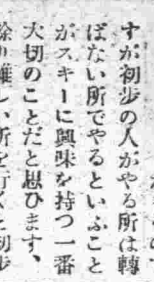 すが初步の人がやる所は轉
ばない所でやるといふこと
がスキーに興味を持つ一番
大切のことだと思ひます、